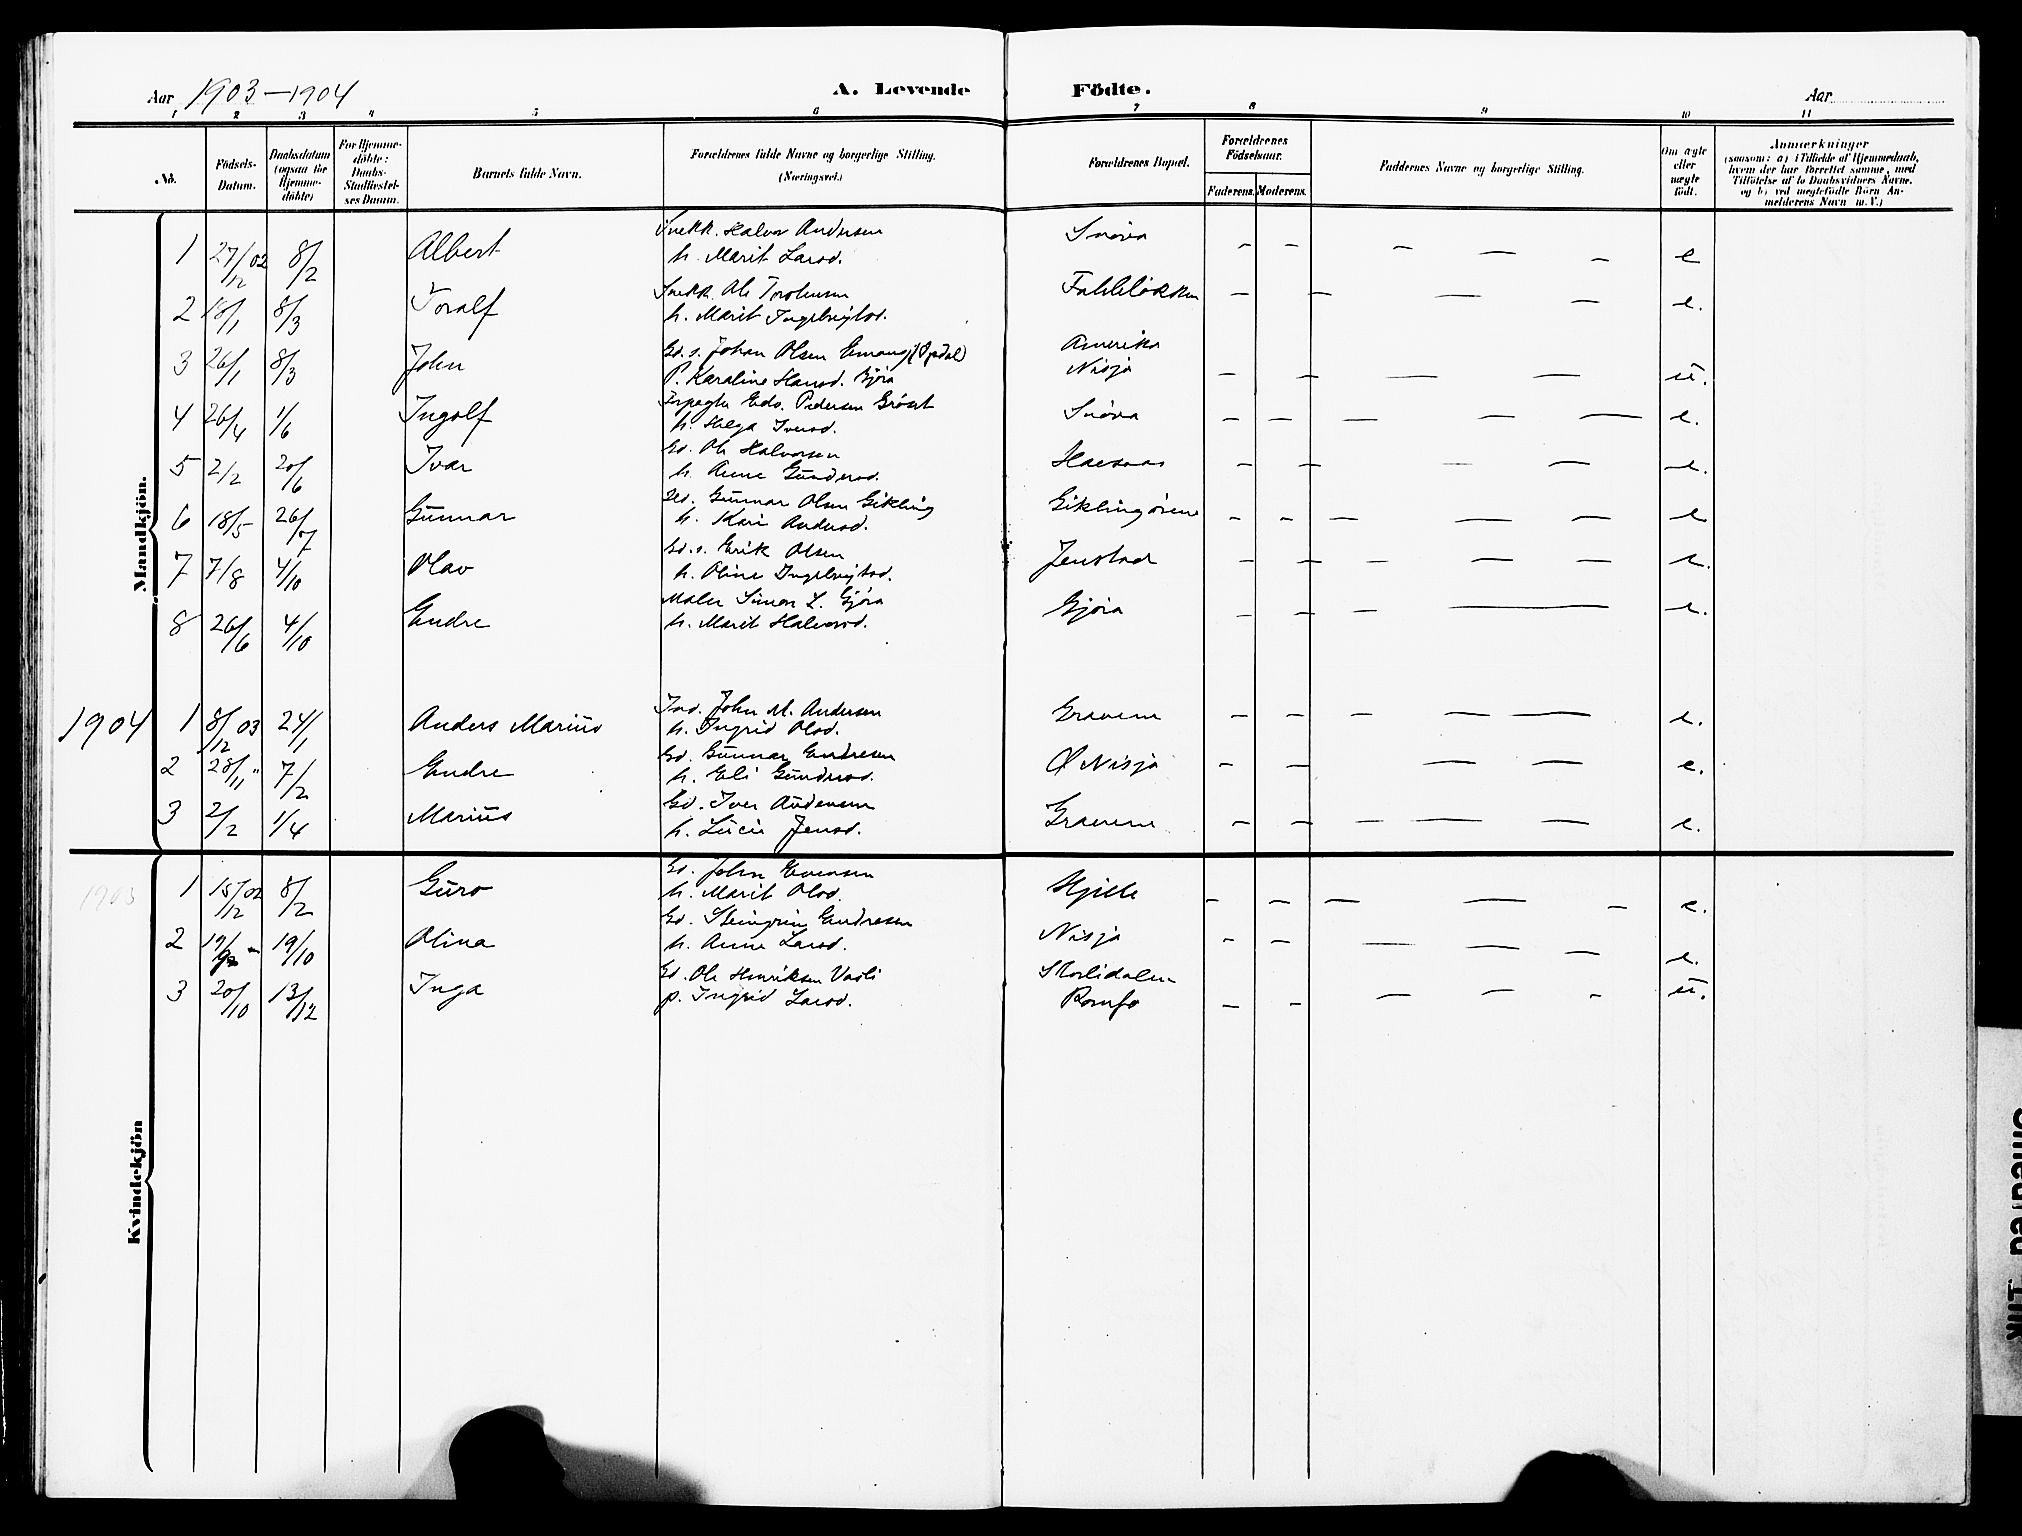 Aar 1903–1904
A. Levende Födte.
Aar
1 2 3 4 5 6 7 8 9 10 11
No.
Födsels-Datum.
Daabsdatum (ogsaa for Hjemmedöbte)
For Hjemmedöbte: Daabs-Stadfæstelses Datum.
Barnets fulde Navn.
Forældrenes fulde Navne og borgerlige Stilling. (Næringsvei.)
Forældrenes Bopæl.
Forældrenes Födselsaar.
Faderens. Moderens.
Faddernes Navne og borgerlige Stilling.
Om ægte eller uægte födt.
Anmærkninger (saasom: a) i Tilfælde af Hjemmedaab, hvem der har forrettet samme, med Tilföielse af to Daabsvidners Navne, og b) ved uægtefödte Börn Anmelderens Navn m.V.)
Mandkjön.
1 27/12 02 8/2 Albert Snekk. Halvor Andersen Snöva – – – – – e
h. Marit Larsd.
2 18/1 8/3 Toralf Snekk. Ole – – – – – e.
h. Marit Ingebrigtsd.
3 26/1 8/3 John Gd. s. Johan Olsen (Opdal) Amerika
P. Karaline Hansd. Gjöra Nisja – – – – u.
4 26/4 1/6 Ingolf Edv. Pedersen Gröset Snöva – – – – – e.
h. Helga Iversd.
5 2/2 20/6 Ivar Gd. Ole Halvorsen – – – – e.
h. Anne Gundersd.
6 18/5 26/7 Gunnar Gunnar Olsen Gikling Giklingöien – – – – – e
h. Kari Andersd.
7 7/8 4/10 Olav Gd. s. Erik Olsen Jenstad – – – – – e.
h. Oline Ingebrigtsd.
8 26/6 4/10 Endre Maler Simon L. Gjöra Gjöra – – – – e.
h. Marit Halvorsd.
1904
1 8/12 03 24/1 Anders Marius Ind. John M. Andersen Gravem – – – – – e.
h. Ingrid Olsd.
2 28/11 " 7/2 Endre Gd. Gunnar Endresen Ø Nisja – – – – e.
h. Eli Gundersd.
3 2/2 1/4 Marius Gd. Iver Andersen Gravem – – – – – e.
h. Lucie Jensd.
Kvindekjön
1903
1 15/12 02 8/2 Guro Gd. John Evensen Hjelle – – – – – e.
h. Marit Olsd.
2 19/10 Olina Gd. Steingrim Endresen Nisja – – – – – e.
h. Anne Larsd.
3 20/10 13/12 Inga Gd. Ole Henriksen Vasli Storlidalen u.
p. Ingrid Larsd. Romfo – – – – –